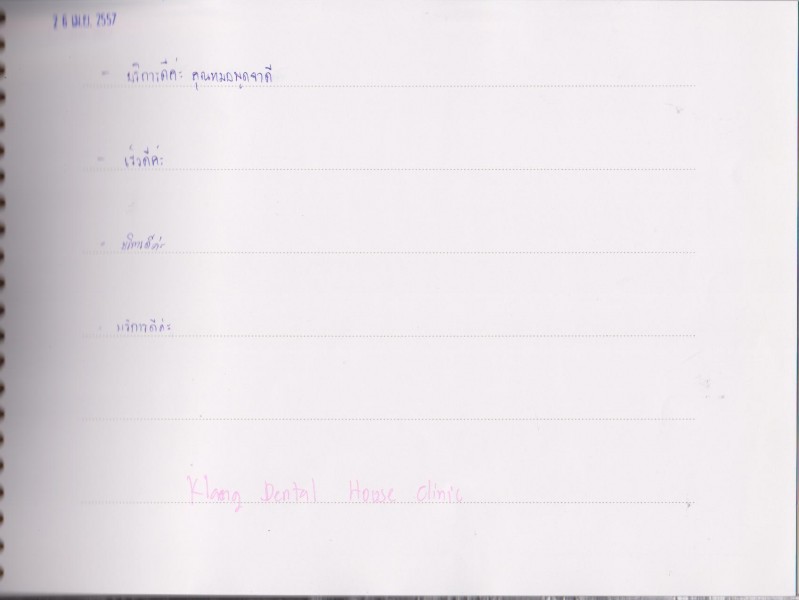 26 เม.ย. 2557
- บริการดีค่ะ คุณหมอพูดจาดี
- เร็วดีค่ะ
- บริการดีค่ะ
- บริการดีค่ะ
Klang Dental House Clinic